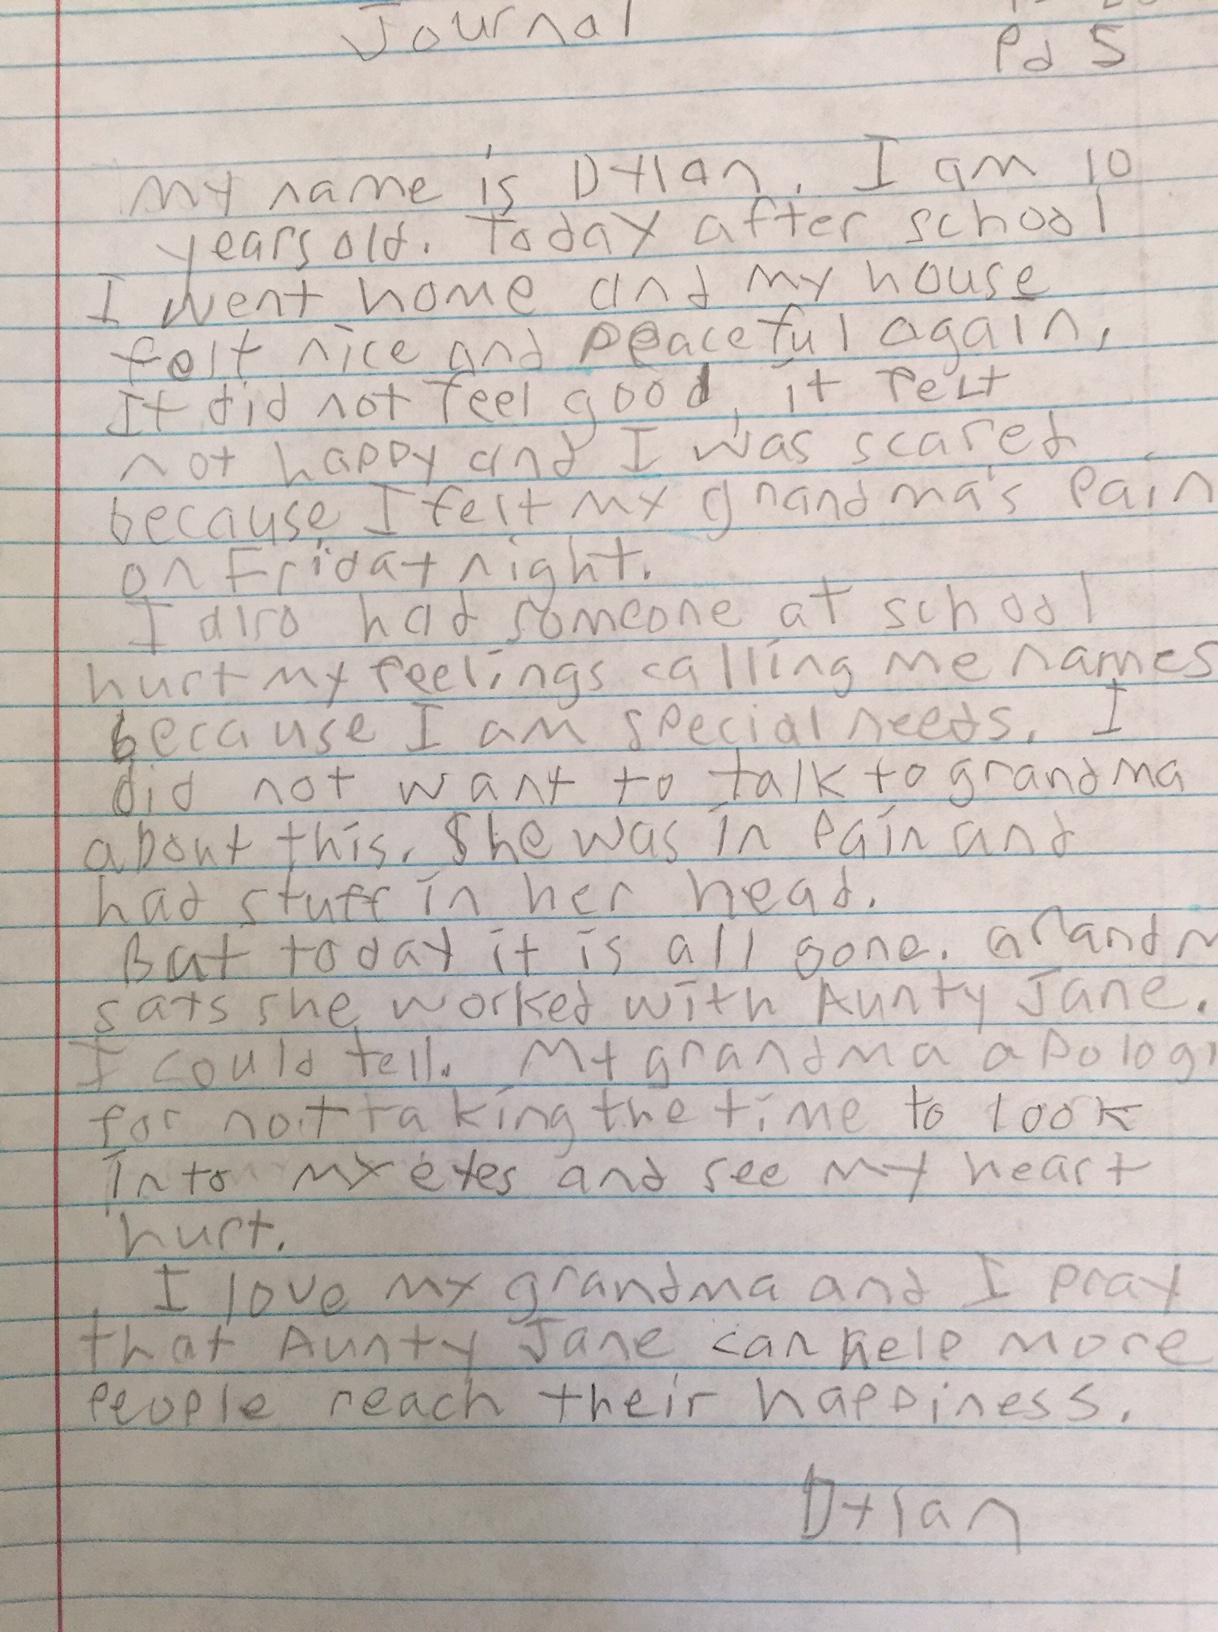 Journal
Pd 5
My name is Dylan. I am 10
years old. Today after school
I went home and my house
felt nice and peaceful again.
It did not feel good, it felt
not happy and I was scared
because I felt my grandma's pain
on Friday night.
I also had someone at school
hurt my feelings calling me names
because I am special needs. I
did not want to talk to grandma
about this. She was in pain and
had stuff in her head.
But today it is all gone. Grandm
says she worked with Aunty Jane.
I could tell. My grandma apologi
for not taking the time to look
into my eyes and see my heart
hurt.
I love my grandma and I pray
that Aunty Jane can help more
people reach their happiness.
Dylan